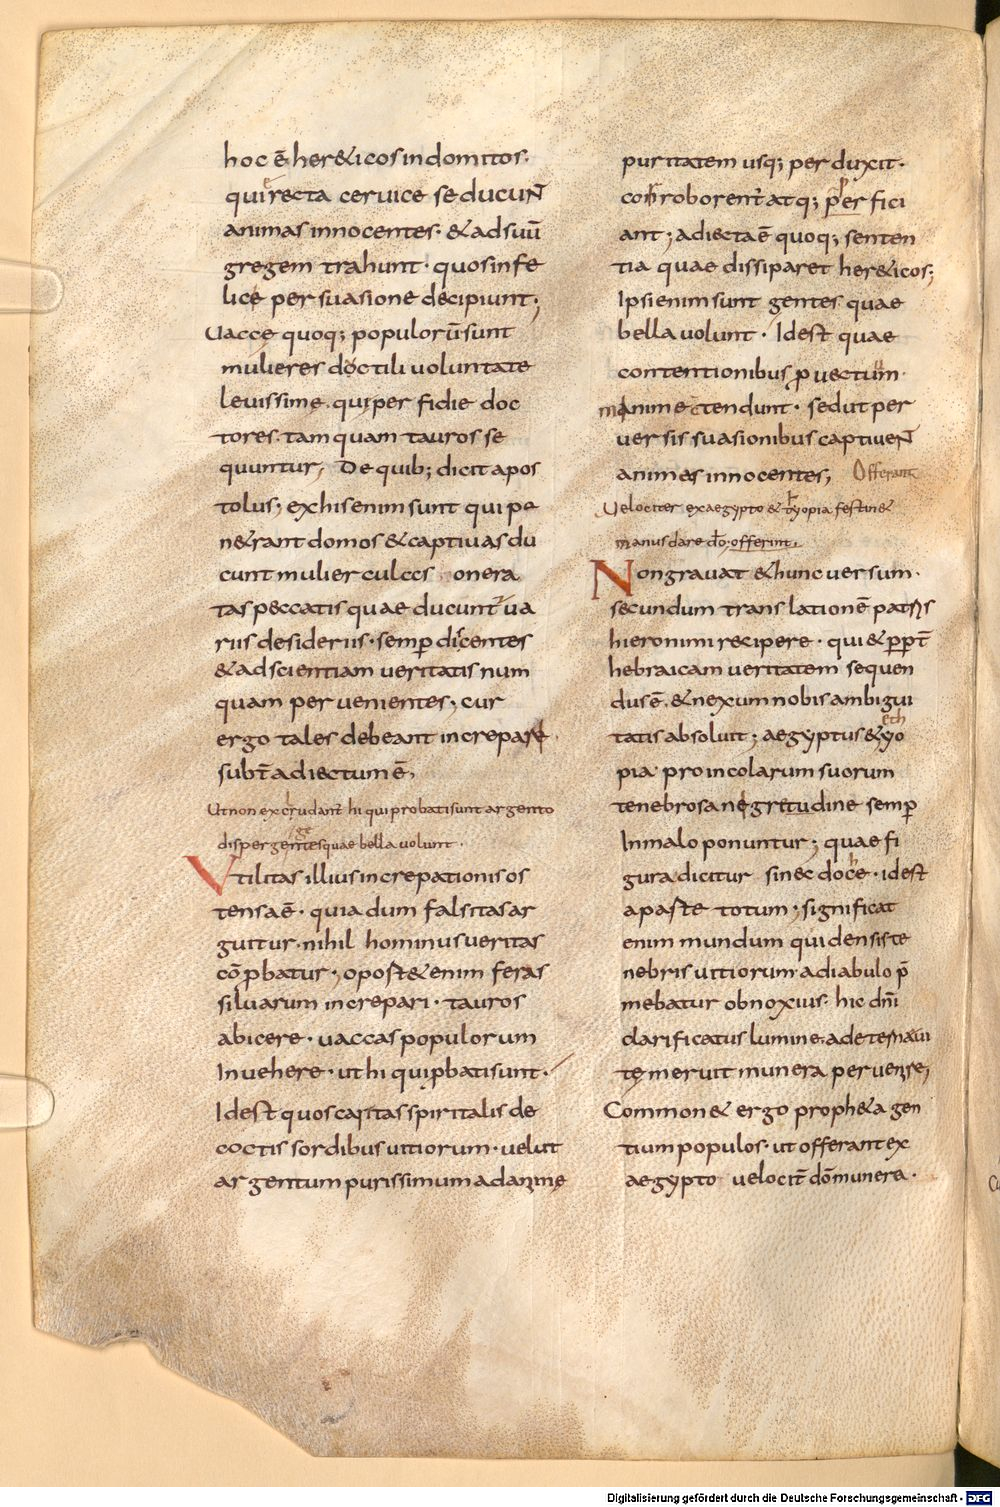 hoc ē her&icos indomitos·
qui erecta ceruice se ducuNT
animas innocentes· & ad suū
gregem trahunt· quos infe
lice persuasione decipiunt;
Uacce quoq; populorū sunt
mulieres doctili uoluntate
leuissime· qui per fidie doc
tores· tam quam tauros se
quuntur, De quib; dicit apos
tolus; ex his enim sunt qui pe
n&rant domos & captiuas du
cunt mulierculccs onera
tas peccatis quae ducunt ua
riis desideriis· semp dicentes
& ad scientiam ueritatis num
quam peruenientes; cur
ergo tales debeant increpare
subt̄ adiectum ē,
Ut non excludant̄ hi qui probati sunt argento
disperge gentes quae bella uolunt·
Utilitas illius increpationis os
tensa ē· quia dum falsitas ar
guitur· nihilhominus ueritas
cōpbatur; oport& enim feras
siluarum increpari· tauros
abicere· uaccas populorum
Inuehere· ut hi qui pbati sunt·
Idest quos caritas spiritalis de
coctis sordibus uitiorum· uelut
argentum purissimum ad anime
puritatem usq; perduxit·
corroborent̄ atq; per fici
ant; adiecta ē quoq; senten
tia quae dissiparet her&icos;
Ipsi enim sunt gentes quae
bella uolunt· Idest quae
contentionibus puectum
anime tendunt· sed ut per
uersis suasionibus captiueNT
animes innocentes; Offerant
Uelociter ex aegypto & thyopia festin&
manus dare dō· offerint,
Non grauat & hunc uersum·
secundum translationē patris
hieronimi recipere· qui & ppt̄
hebraicam ueritatem sequen
dus ē, & nexum nobis ambigui
eth
tatis absoluit; aegyptus & yo
pia pro incolarum suorum
tenebrosa negritudine semp
In malo ponuntur; quae fi
gura dicitur sinec doche· idest
a parte totum; significat
enim mundum qui densis te
nebris uitiorum a diabulo p̄
mebatur obnoxius· hic dn̄i
clarificatus lumine· ad eternam
te meruit munera peruenire;
Common& ergo proph&a gen
tium populos· ut offerant ex
aegypto uelocit̄ dōmunera·
Digitalisierung gefördert durch die Deutsche Forschungsgemeinschaft - DFG